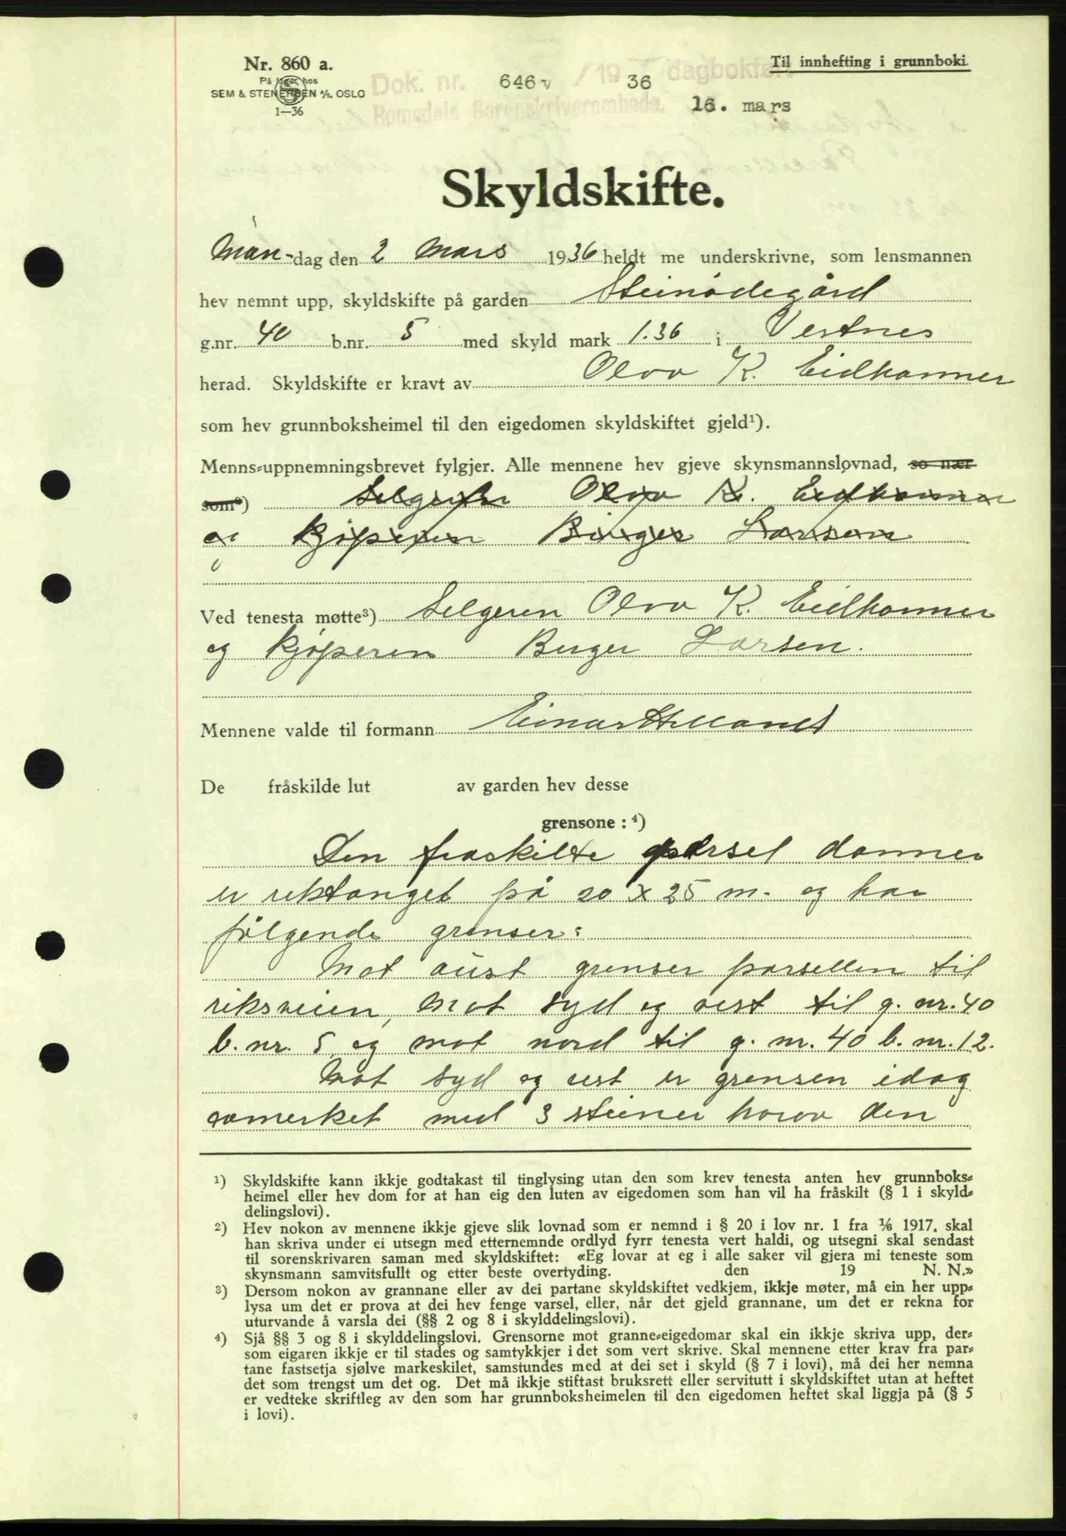 Nr. 860 a.
På lager hos
SEM & STENERSEN A/S. OSLO
1—36
Til innhefting i grunnboki.
Dok. nr. 646 /19 36 dagbokført
Romsdals Sorenskriverembede.
16. mars
Skyldskifte.
Mån-dag den 2 Mars 1936 heldt me underskrivne, som lensmannen
hev nemnt upp, skyldskifte på garden Steinødegård
g.nr. 40 b.nr. 5 med skyld mark 1.36 i Vestnes
herad. Skyldskifte er kravt av Olva K. Eidhammer
som hev grunnboksheimel til den eigedomen skyldskiftet gjeld¹).
Menns-uppnemningsbrevet fylgjer. Alle mennene hev gjeve skynsmannslovnad, so nær
som²) Selgeren Olva K. Eidhammer
og kjøperen Birger Larsen
Ved tenesta møtte³) Selgeren Olva K. Eidhammer
og kjøperen Birger Larsen.
Mennene valde til formann Einar Helland
De fråskilde lut av garden hev desse
grensone : ⁴)
Den fraskilte parsel danner
er rektanget på 20 x 25 m. og har
følgende grenser:
Mot aust grenser parsellen til
riksveien, Mot syd og vest til g. nr. 40
b. nr. 5 og mot nord til g. nr. 40 b. nr. 12.
Mot syd og vest er grensen idag
avmerket med 3 steiner horav den
¹) Skyldskifte kann ikkje godtakast til tinglysing utan den som krev tenesta anten hev grunnboks-
heimel eller hev dom for at han eig den luten av eigedomen som han vil ha fråskilt (§ 1 i skyld-
delingslovi).
²) Hev nokon av mennene ikkje gjeve slik lovnad som er nemnd i § 20 i lov nr. 1 fra 1/6 1917, skal
han skriva under ei utsegn med etternemnde ordlyd fyrr tenesta vert haldi, og utsegni skal sendast
til sorenskrivaren saman med skyldskiftet: «Eg lovar at eg i alle saker vil gjera mi teneste som
skynsmann samvitsfullt og etter beste overtyding. den 19 N. N.»
³) Dersom nokon av grannane eller av dei partane skyldskiftet vedkjem, ikkje møter, må ein her upp-
lysa um det er prova at dei hev fenge varsel, eller, når det gjeld grannane, um det er rekna for
uturvande å varsla dei (§§ 2 og 8 i skylddelingslovi).
⁴) Sjå §§ 3 og 8 i skylddelingslovi. Grensorne mot granne-eigedomar skal ein ikkje skriva upp, der-
som eigaren ikkje er til stades og samtykkjer i det som vert skrive. Skal mennene etter krav fra par-
tane fastsetja sjølve markeskilet, samstundes med at dei set i skyld (§ 7 i lovi), må dei her nemna
det som trengst um det og. Det må ikkje stiftast bruksrett eller servitutt i skyldskiftet utan at heftet
er vedteke skriftleg av den som har grunnboksheimelen til den eigedomen heftet skal liggja på (§ 5
i lovi).